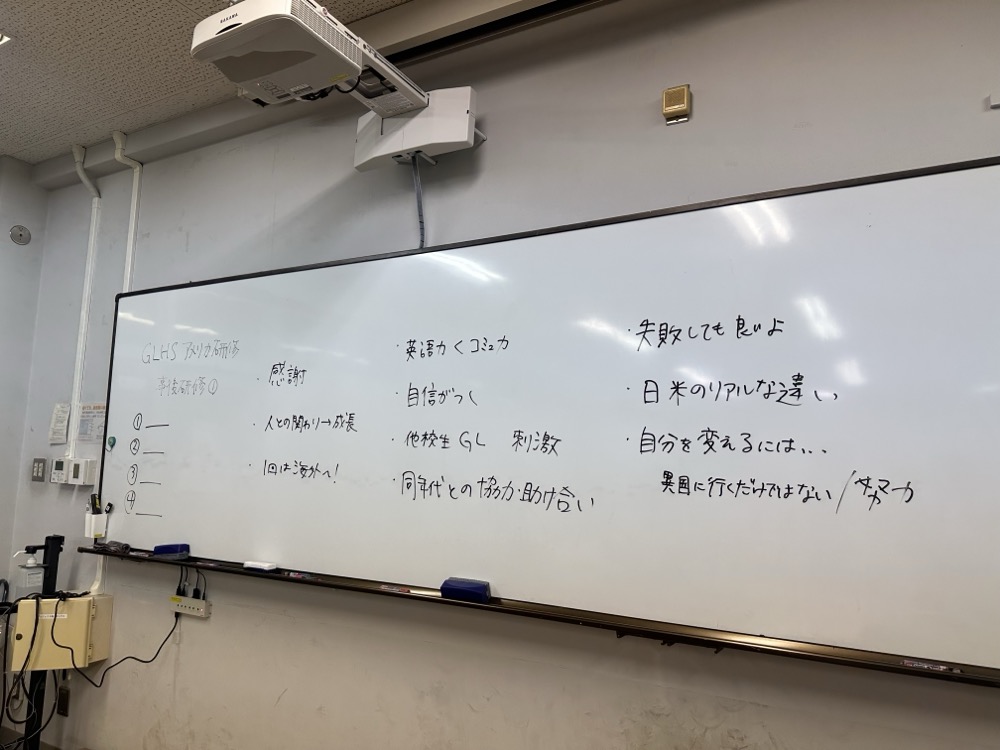 GLHS アメリカ研修
事後研修①
①
②
③
④
・感謝
・人との関わり→成長
・1回は海外へ!
・英語力<コミュ力
・自信がつく
・他校生GL 刺激
・同年代との協力・助け合い
・失敗しても良いよ
・日米のリアルな違い
・自分を変えるには、、、
異国に行くだけではない/努力